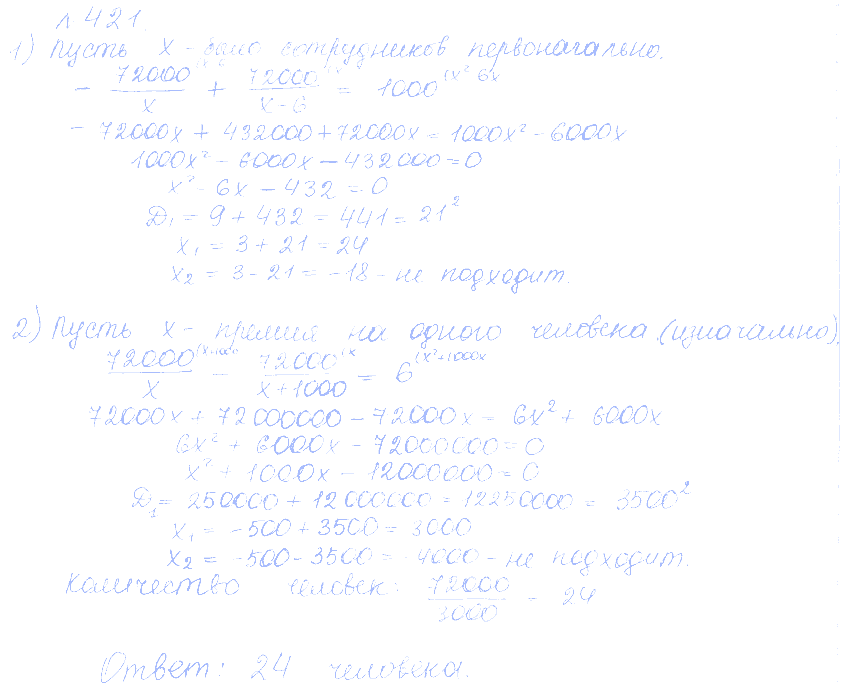 л 421.
1) Пусть x - было сотрудников первоначально.
- 72000/x + 72000/(x-6) = 1000 (x²-6x
- 72000x + 432000 + 72000x = 1000x² - 6000x
1000x² - 6000x - 432000 = 0
x² - 6x - 432 = 0
D₁ = 9 + 432 = 441 = 21²
x₁ = 3 + 21 = 24
x₂ = 3 - 21 = -18 - не подходит.
2) Пусть x - премия на одного человека (изначально).
72000/x (x+1000) - 72000/(x+1000) (x = 6 (x²+1000x
72000x + 72000000 - 72000x = 6x² + 6000x
6x² + 6000x - 72000000 = 0
x² + 1000x - 12000000 = 0
D₁ = 250000 + 12000000 = 12250000 = 3500²
x₁ = -500 + 3500 = 3000
x₂ = -500 - 3500 = -4000 - не подходит.
Количество человек: 72000/3000 = 24
Ответ: 24 человека.